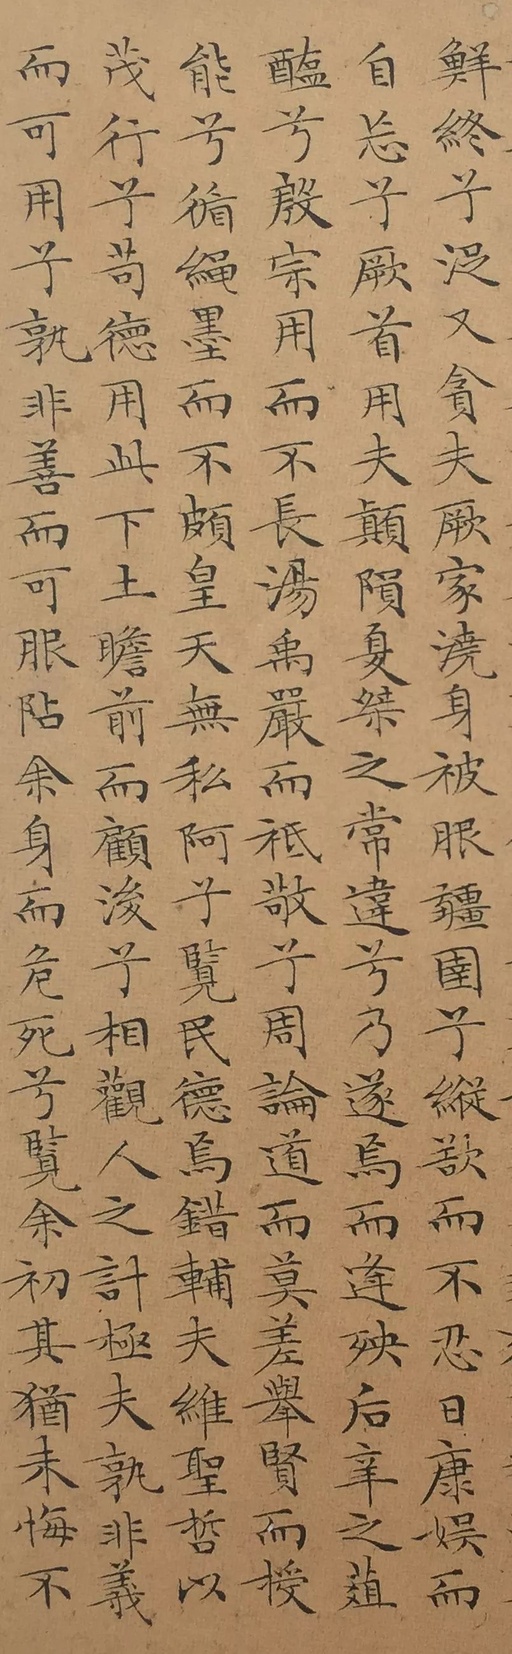 鮮終兮浞又貪夫厥家澆身被服疆圉兮縱欲而不忍日康娛而
自忘兮厥首用夫顛隕夏桀之常違兮乃遂焉而逢殃后辛之菹
醢兮殷宗用而不長湯禹嚴而祗敬兮周論道而莫差舉賢而授
能兮循繩墨而不頗皇天無私阿兮覽民德焉錯輔夫維聖哲以
茂行兮苟德用此下土瞻前而顧後兮相觀人之計極夫孰非義
而可用兮孰非善而可服阽余身而危死兮覽余初其猶未悔不